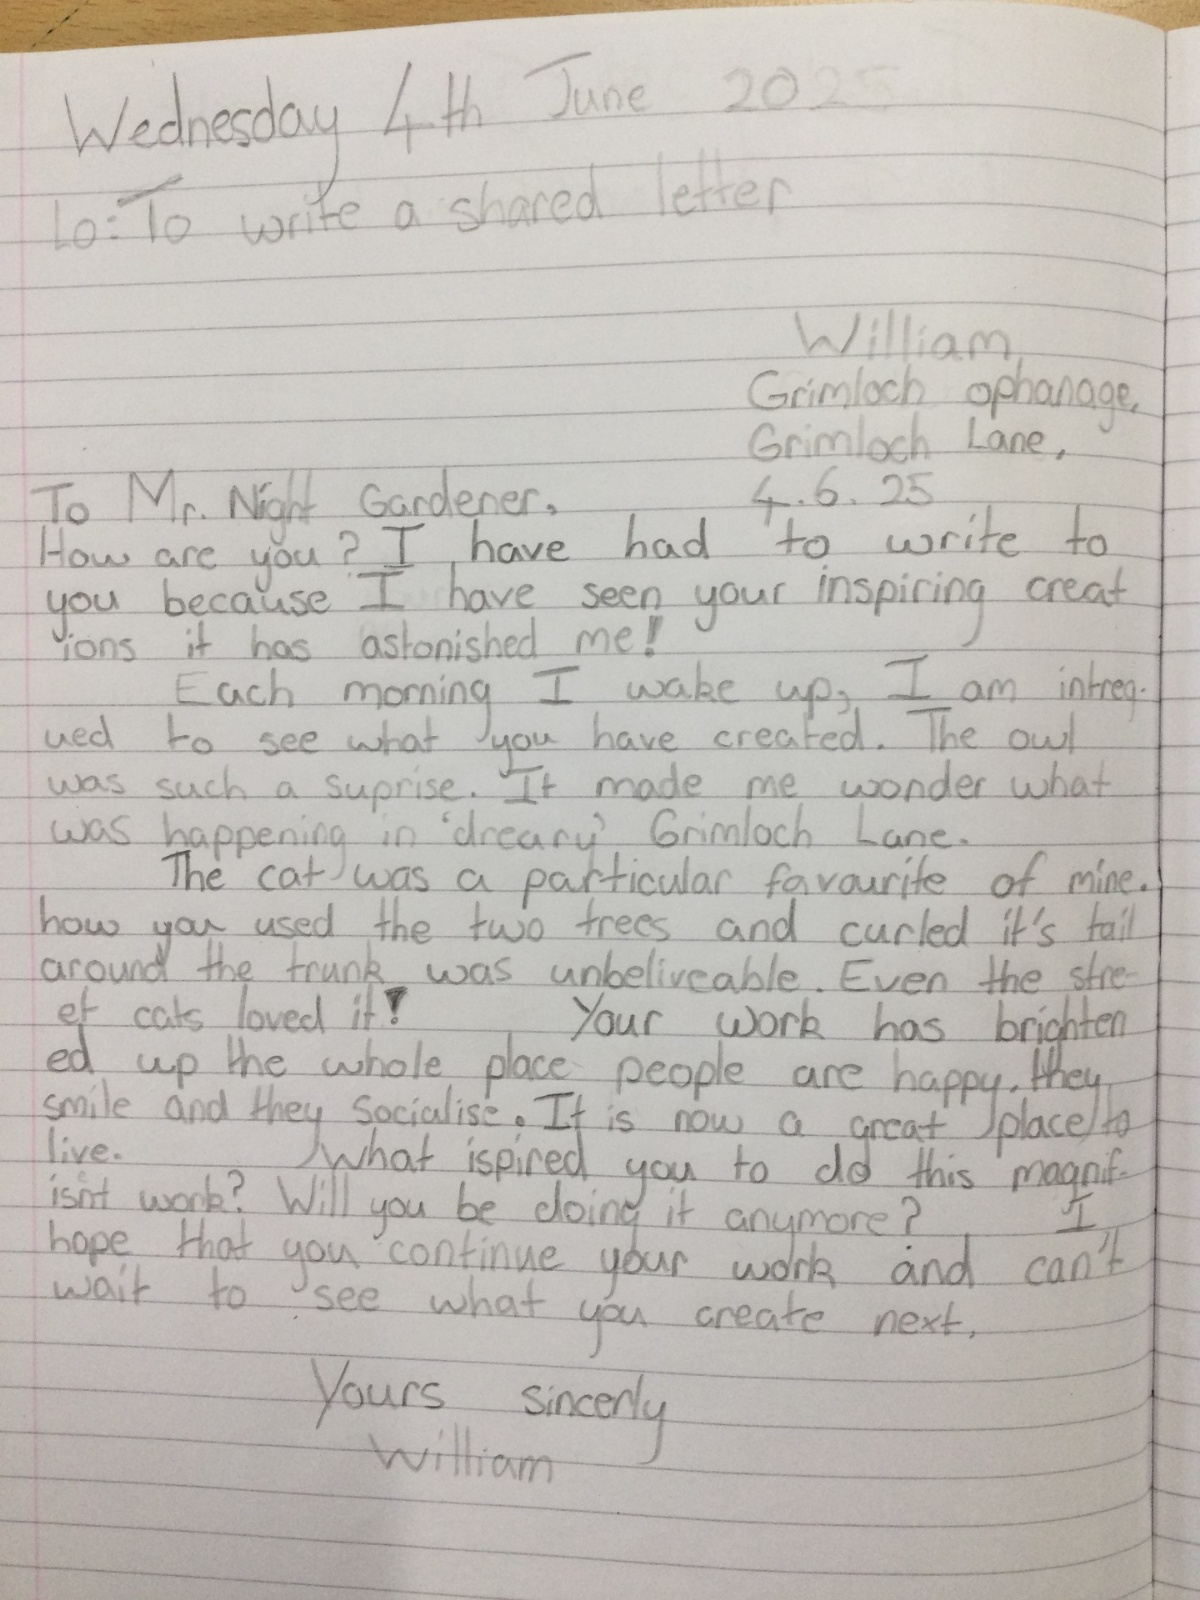 Wednesday 4th June 2025
Lo: To write a shared letter
William,
Grimloch ophanage,
Grimloch Lane,
4.6.25
To Mr. Night Gardener,
How are you? I have had to write to
you because I have seen your inspiring creat
ions it has astonished me!
Each morning I wake up, I am intreg-
ued to see what you have created. The owl
was such a suprise. It made me wonder what
was happening in 'dreary' Grimloch Lane.
The cat was a particular favourite of mine.
how you used the two trees and curled it's tail
around the trunk was unbeliveable. Even the stre-
et cats loved it! Your work has brighten
ed up the whole place people are happy, they
smile and they socialise. It is now a great place to
live. What ispired you to do this magnif-
isnt work? Will you be doing it anymore? I
hope that you continue your work and can't
wait to see what you create next.
Yours sincerly
William